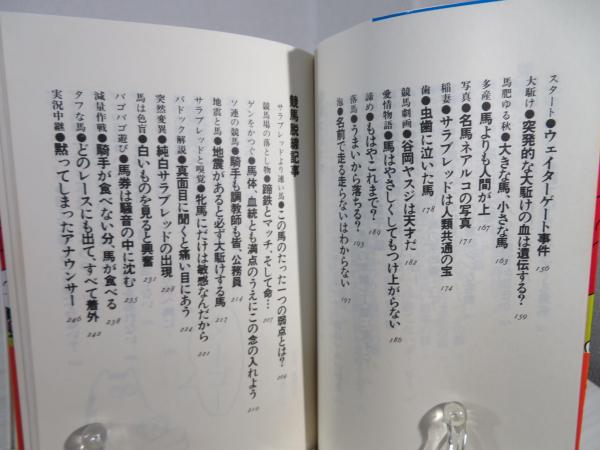 スタート●ウェイターゲート事件 156
大駈け●突発的な大駈けの血は遺伝する? 159
馬肥ゆる秋●大きな馬、小さな馬 163
多産●馬よりも人間が上 167
写真●名馬ネアルコの写真 171
稲妻●サラブレッドは人類共通の宝 174
歯●虫歯に泣いた馬 178
競馬劇画●谷岡ヤスジは天才だ 182
愛情物語●馬はやさしくしてもつけ上がらない 186
諦め●もはやこれまで? 189
落馬●うまいから落ちる? 193
泡●名前で走る走らないはわからない 197
競馬脱線記事
サラブレッドより速い馬●この馬のたった一つの弱点とは? 204
競馬場の落とし物●蹄鉄とマッチ、そして命… 207
ゲンをかつぐ●馬体、血統とも満点のうえにこの念の入れよう 210
ソ連の競馬●騎手も調教師も皆、公務員 214
地震と馬●地震があると必ず大駈けする馬 217
サラブレッドと嗅覚●牝馬にだけは敏感なんだから 221
パドック解説●真面目に聞くと痛い目にあう 224
突然変異●純白サラブレッドの出現 228
馬は色盲●白いものを見ると興奮 231
バゴバゴ遊び●馬券は騒音の中に沈む 235
減量作戦●騎手が食べない分、馬が食べる 238
タフな馬●どのレースにも出て、すべて着外 242
実況中継●黙ってしまったアナウンサー 246